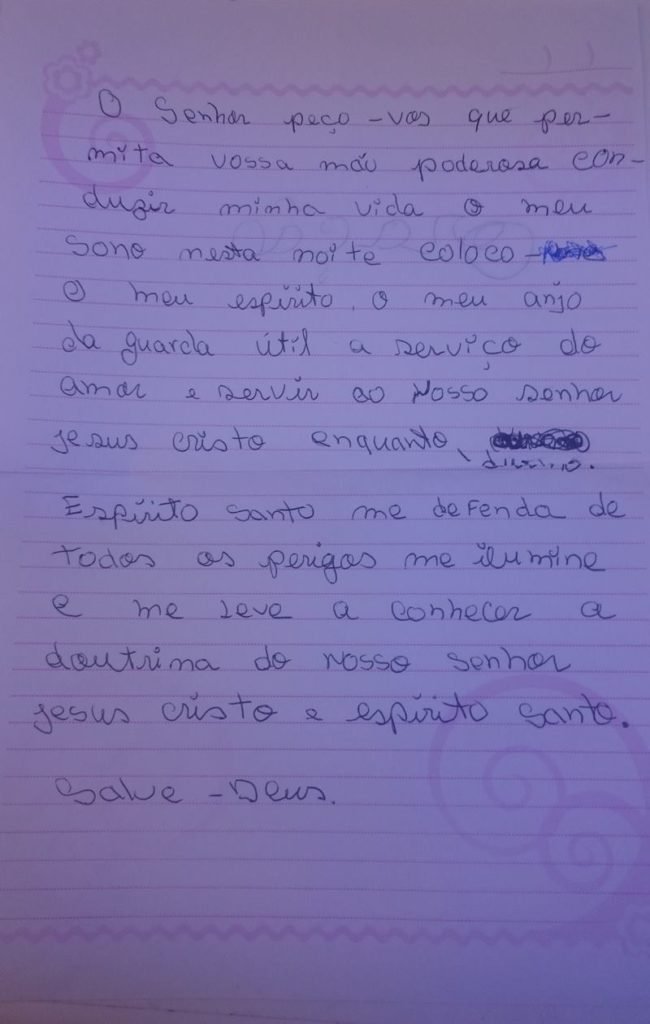 O Senhor peço-vos que per-
mita vossa mão poderosa con-
duzir minha vida o meu
sono nesta noite coloco-
o meu espírito, o meu anjo
da guarda útil a serviço do
amor e servir ao Nosso senhor
jesus cristo enquanto
Espírito Santo me defenda de
todos os perigos me ilumine
e me leve a conhecer a
doutrina do nosso senhor
jesus cristo e espírito santo.
Salve-Deus.